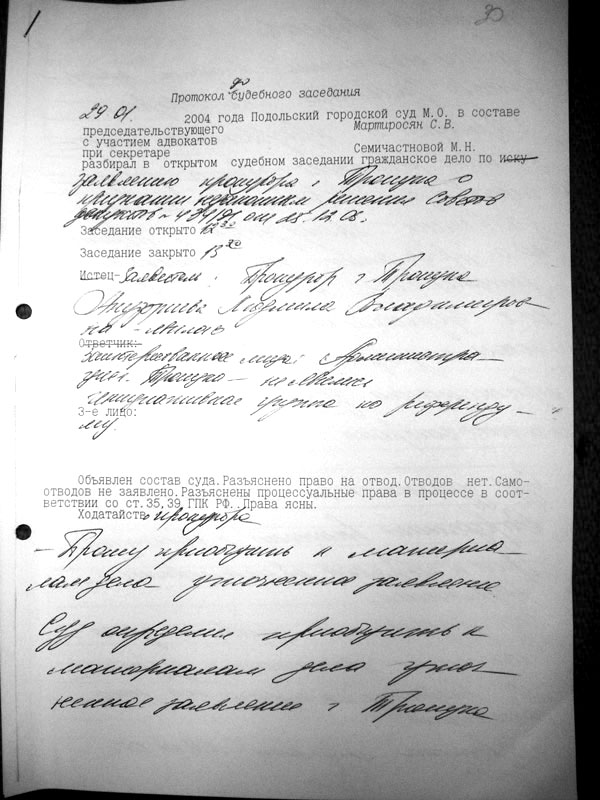 30
Протокол судебного заседания
29.01. 2004 года Подольский городской суд М.О. в составе
председательствующего Мартиросян С.В.
с участием адвокатов
при секретаре Семичастновой М.Н.
разбирал в открытом судебном заседании гражданское дело по иску
заявлению прокурора г Троицка о
признании решения Совета
депутатов от 25.12.03.
Заседание открыто 12 30
Заседание закрыто 13 20
Истец- Заявитель: Прокурор г Троицка
Людмила Владимиров
на - явилась
Ответчик:
заинтересованные лица: Администра-
ция Троицка - не явились
инициативная группа по референду-
3-е лицо:
му.
Объявлен состав суда.Разъяснено право на отвод.Отводов нет.Само-
отводов не заявлено.Разъяснены процессуальные права в процессе в соот-
ветствии со ст.35,39 ГПК РФ. Права ясны.
Ходатайств прокурора
- Прошу приобщить к материа-
лам дела уточненное заявление
Суд определил приобщить к
материалам дела уточ
ненное заявление г Троицка